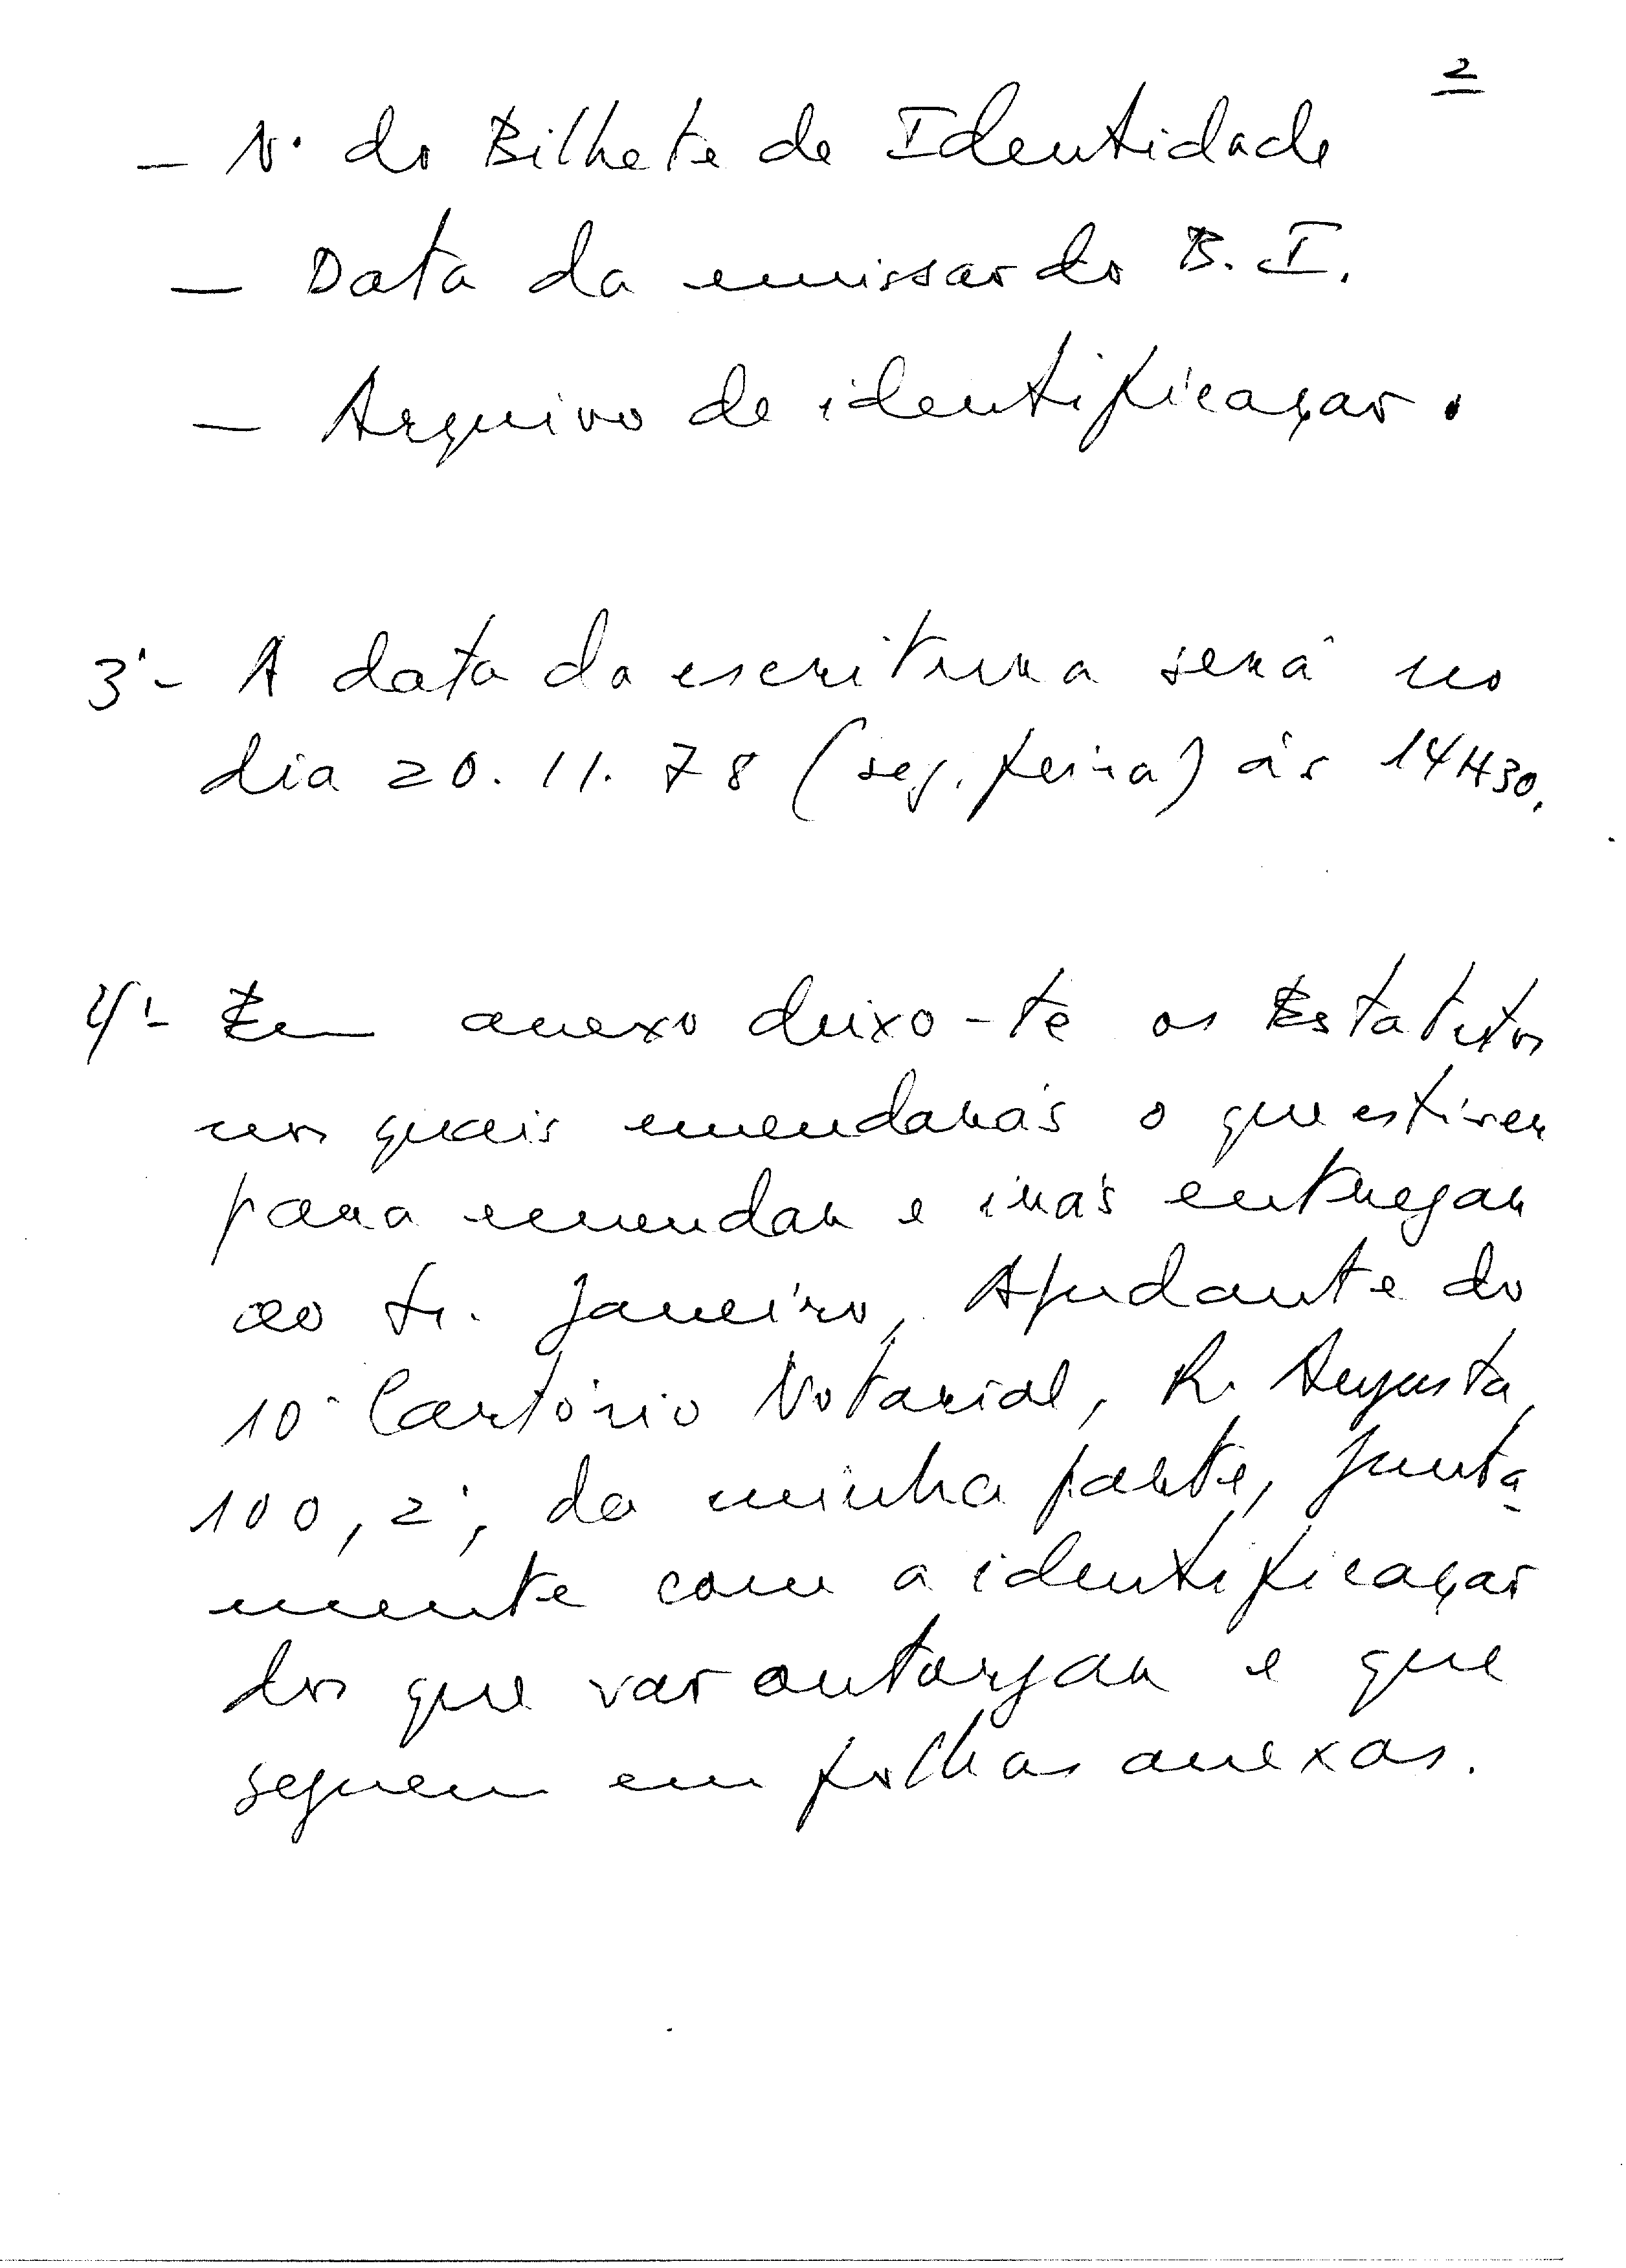 2
- Nº do Bilhete de Identidade
- Data da emissão do B. I.
- Arquivo de identificação.
3º- A data da escritura será no
dia 20.11.78 (seg. feira) às 14H30.
4º- Em anexo deixo-te os Estatutos
nos quais emendarás o que estiver
para emendar e irás entregar
ao Sr. Janeiro, Ajudante do
10º Cartório Notarial, R. Augusta,
100, 2º, da minha parte, junta-
mente com a identificação
dos que vão outorgar e que
seguem em folhas anexas.